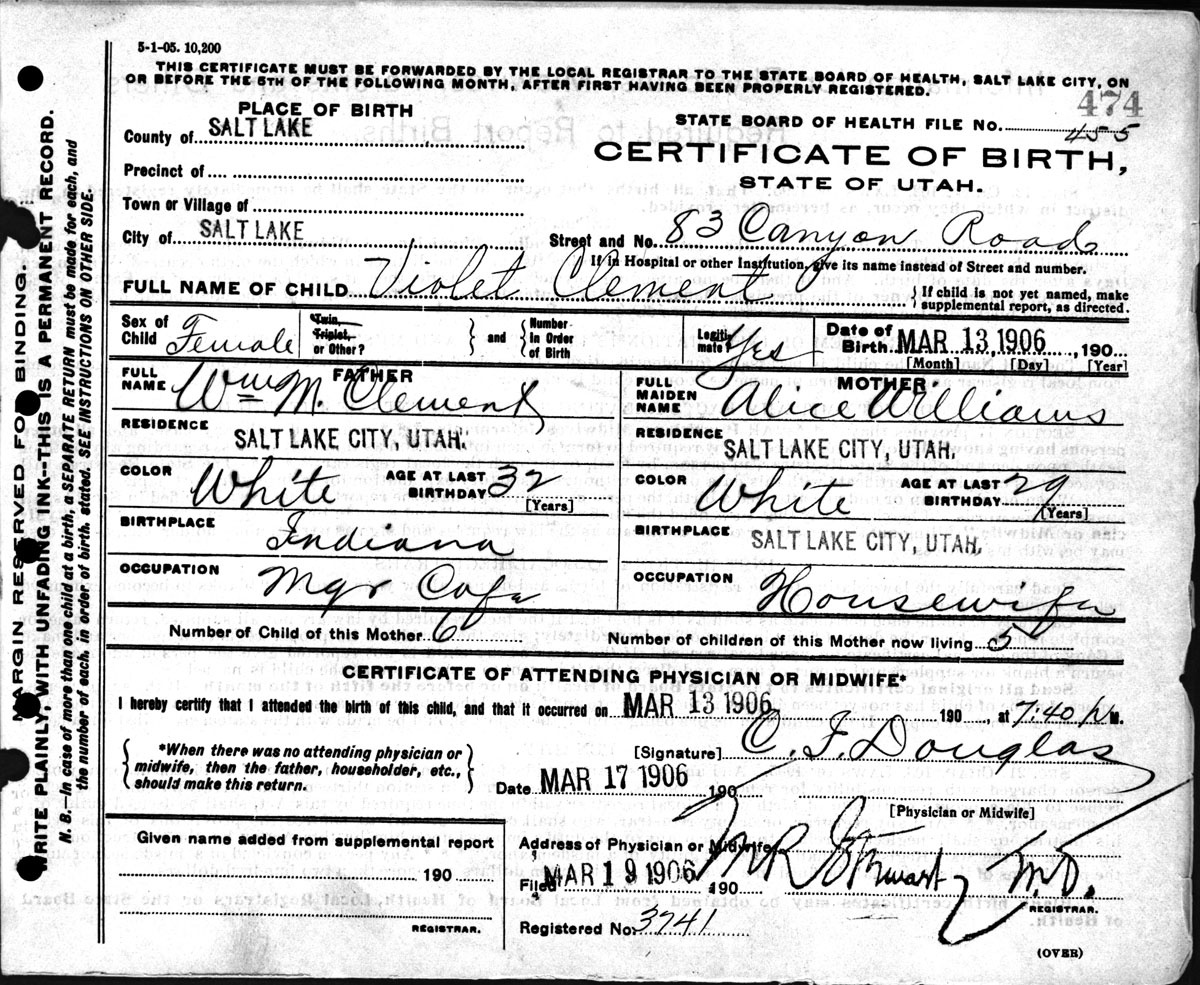 5-1-05. 10,200
THIS CERTIFICATE MUST BE FORWARDED BY THE LOCAL REGISTRAR TO THE STATE BOARD OF HEALTH, SALT LAKE CITY, ON
OR BEFORE THE 5TH OF THE FOLLOWING MONTH, AFTER FIRST HAVING BEEN PROPERLY REGISTERED.
474
PLACE OF BIRTH
STATE BOARD OF HEALTH FILE No. 455
County of SALT LAKE
CERTIFICATE OF BIRTH,
STATE OF UTAH.
Precinct of
Town or Village of
City of SALT LAKE
Street and No. 83 Canyon Road
If in Hospital or other Institution, give its name instead of Street and number.
FULL NAME OF CHILD Violet Clement
If child is not yet named, make
supplemental report, as directed.
Sex of Child Female
Twin, Triplet, or Other?
and
Number in Order of Birth
Legitimate? Yes
Date of Birth MAR 13, 1906, 190
[Month] [Day] [Year]
FATHER
FULL NAME Wm M. Clement
RESIDENCE SALT LAKE CITY, UTAH.
COLOR White
AGE AT LAST BIRTHDAY 32
[Years]
BIRTHPLACE Indiana
OCCUPATION Mgr Cafe
MOTHER
FULL MAIDEN NAME Alice Williams
RESIDENCE SALT LAKE CITY, UTAH.
COLOR White
AGE AT LAST BIRTHDAY 29
[Years]
BIRTHPLACE SALT LAKE CITY, UTAH.
OCCUPATION Housewife
Number of Child of this Mother 6
Number of children of this Mother now living 5
CERTIFICATE OF ATTENDING PHYSICIAN OR MIDWIFE*
I hereby certify that I attended the birth of this child, and that it occurred on MAR 13 1906 190 , at 7:40 P. M.
*When there was no attending physician or
midwife, then the father, householder, etc.,
should make this return.
[Signature] C. F. Douglas
Date MAR 17 1906 190
[Physician or Midwife]
Given name added from supplemental report
190
REGISTRAR.
Address of Physician or Midwife
Filed MAR 19 1906 190
Stewart M.D.
REGISTRAR.
Registered No. 3741
(OVER)
MARGIN RESERVED FOR BINDING.
WRITE PLAINLY, WITH UNFADING INK--THIS IS A PERMANENT RECORD.
N. B.—In case of more than one child at a birth, a SEPARATE RETURN must be made for each, and
the number of each, in order of birth, stated. SEE INSTRUCTIONS ON OTHER SIDE.